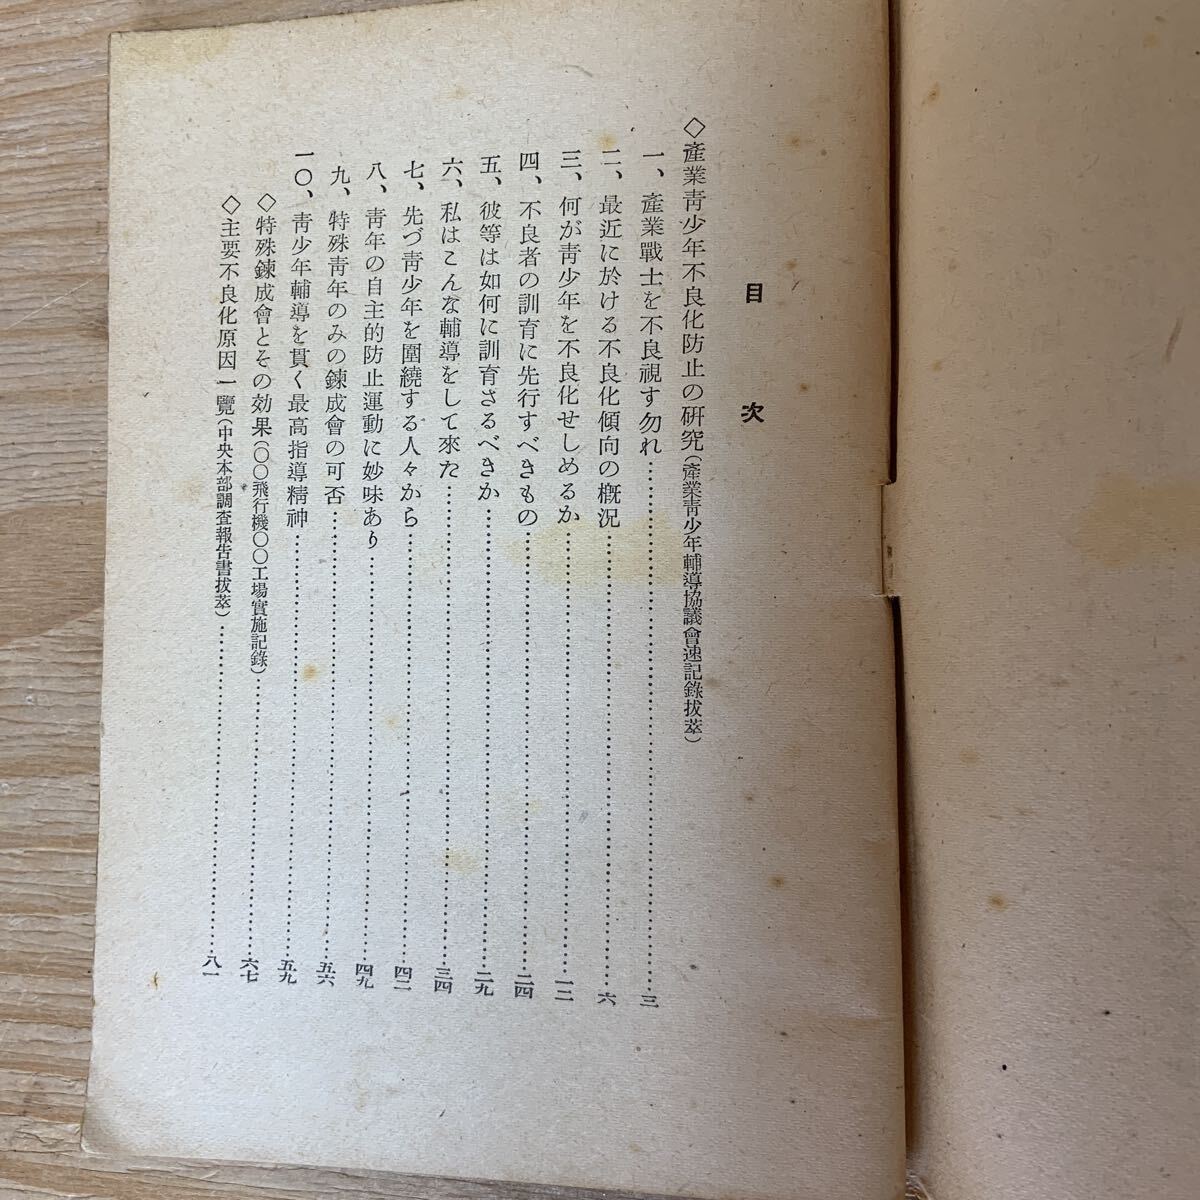 目次
◇産業靑少年不良化防止の硏究(產業靑少年輔導協議會速記錄拔萃)
一、產業戰士を不良視す勿れ……三
二、最近に於ける不良化傾向の槪況……六
三、何が靑少年を不良化せしめるか……一二
四、不良者の訓育に先行すべきもの……二四
五、彼等は如何に訓育さるべきか……二九
六、私はこんな輔導をして來た……三四
七、先づ靑少年を圍繞する人々から……四二
八、靑年の自主的防止運動に妙味あり……四九
九、特殊靑年のみの鍊成會の可否……五六
一〇、靑少年輔導を貫く最高指導精神……五九
◇特殊鍊成會とその効果(〇〇飛行機〇〇工場實施記錄)……六七
◇主要不良化原因一覽(中央本部調査報告書拔萃)……八一